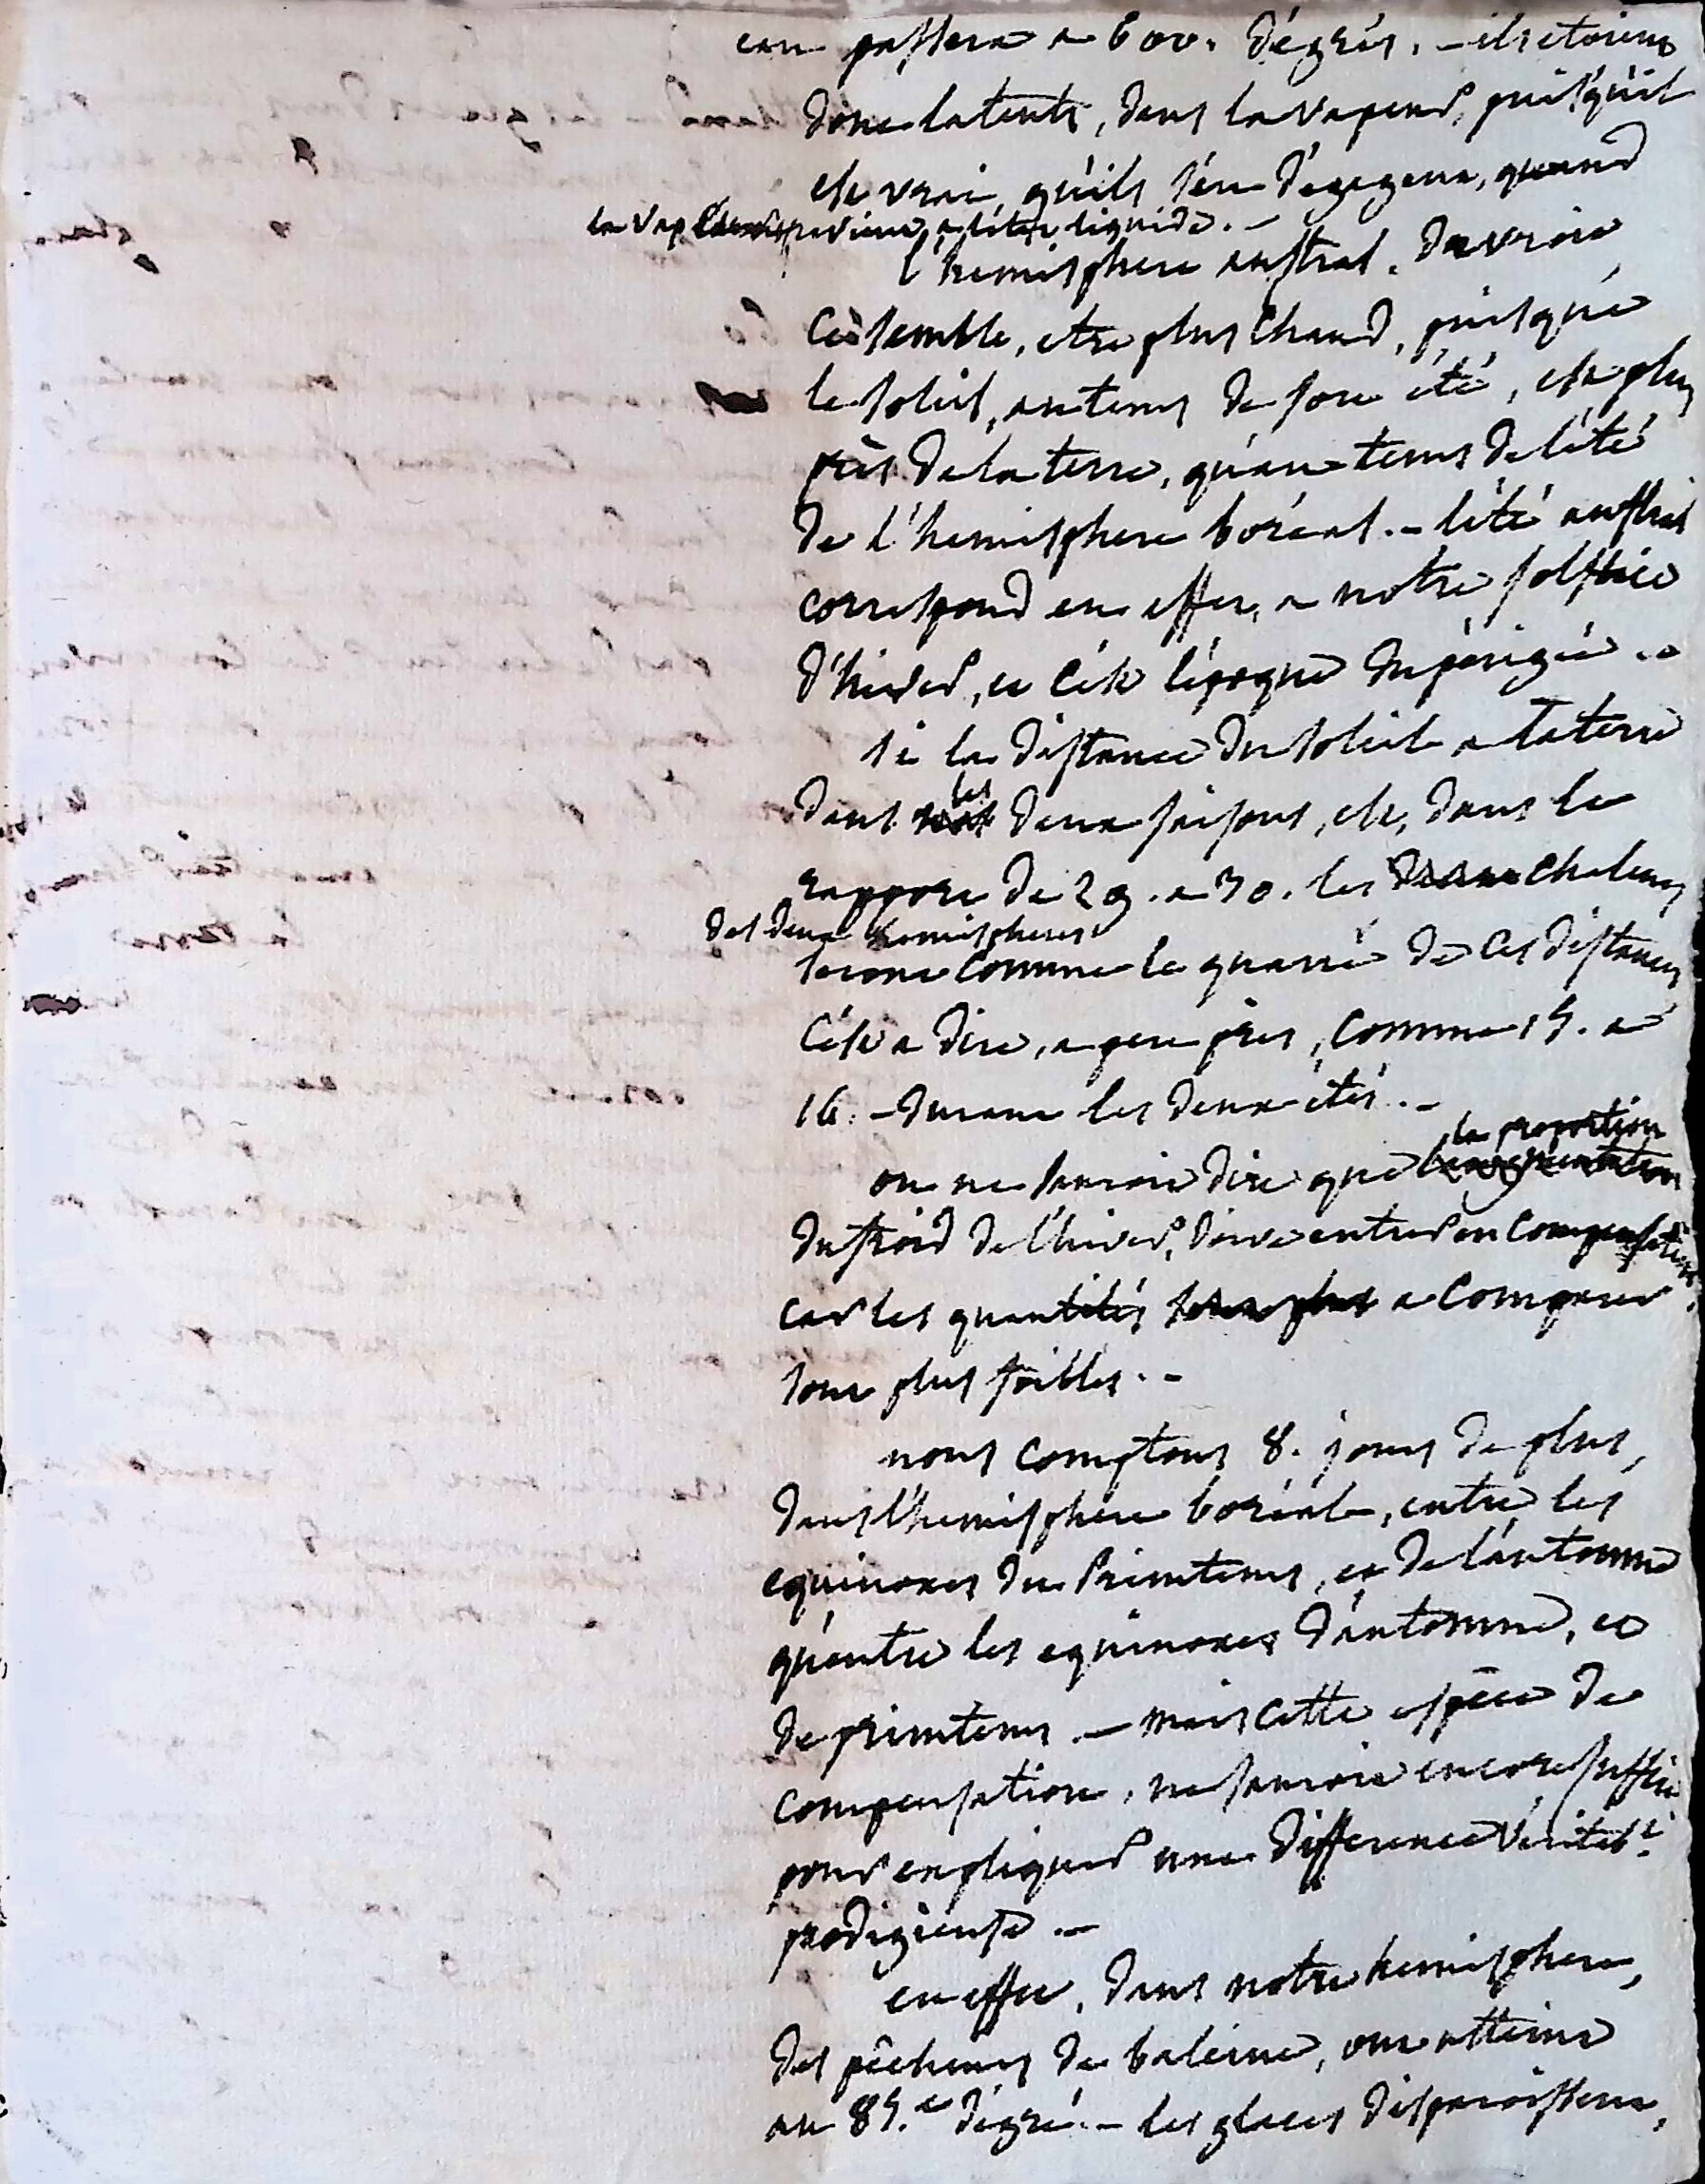 eau passera a 600. dégrés. – ils etoient
donc latents, dans la vapeur, puisqu'il
est vrai, qu'ils s'en dégagent, quand
la vapeur revient a l'état liquide. –
l'hemisphere austral. devroit
ce semble, etre plus chaud, puisque
le soleil, au tems de son été, est plus
près de la terre, qu'au tems de l'été
de l'hemisphere boréal. – l'été austral
correspond en effet, a notre solstice
d'hiver, et c'est l'époque du périgée. –
si la distance du soleil a la terre
les
dans deux saisons, est, dans le
rapport de 29. a 30. les chaleurs
des deux hemispheres
seront comme le quarré de ces distances
c'est a dire, a peu près, comme 15. a
16. – durant les deux étés. –
la proportion
on ne sauroit dire que l'augmentation
du froid de l'hiver, doive entrer en compensation,
car les quantités sont plus a comparer
sont plus foibles. –
nous comptons 8. jours de plus,
dans l'hemisphere boréal, entre les
equinoxes du Printems, et de l'automne
qu'entre les equinoxes d'automne, et
de printems. – mais cette espèce de
compensation, ne sauroit encore suffire
pour expliquer une difference véritabt
prodigieuse. –
en effet, dans notre hemisphere,
des pêcheurs de baleine, ont atteint
au 85.e dégré. – les glaces disparoissent,